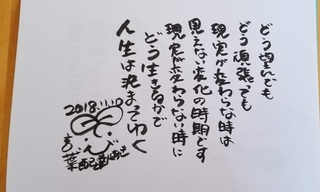 どう望んでも
どう頑張っても
現実が変わらない時は
見えない変化の時期です
現実が変わらない時に
どう生きるかで
人生は決まってゆく
2018.11.10